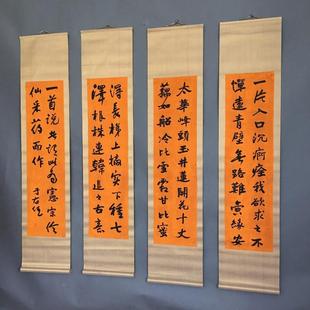 一片入口沉痾痊我欲求之不
憚遠青壁無路難夤緣安
太華峰頭玉井蓮開花十丈
藕如船冷比雪霜甘比蜜
得長梯上摘實下種七
澤根株連韓退之古意
一首说憲宗
仙采药而作 于右任